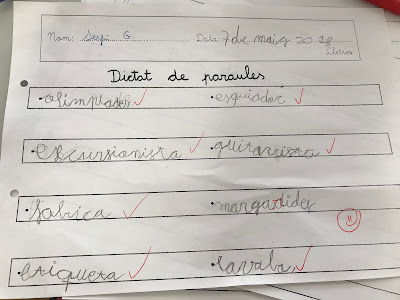 Nom: Sergi G Data: 7 de maig 2018
Dictat de paraules
olimpiades esquiador
excursionista guitarrista
fabrica margarides
etiqueta